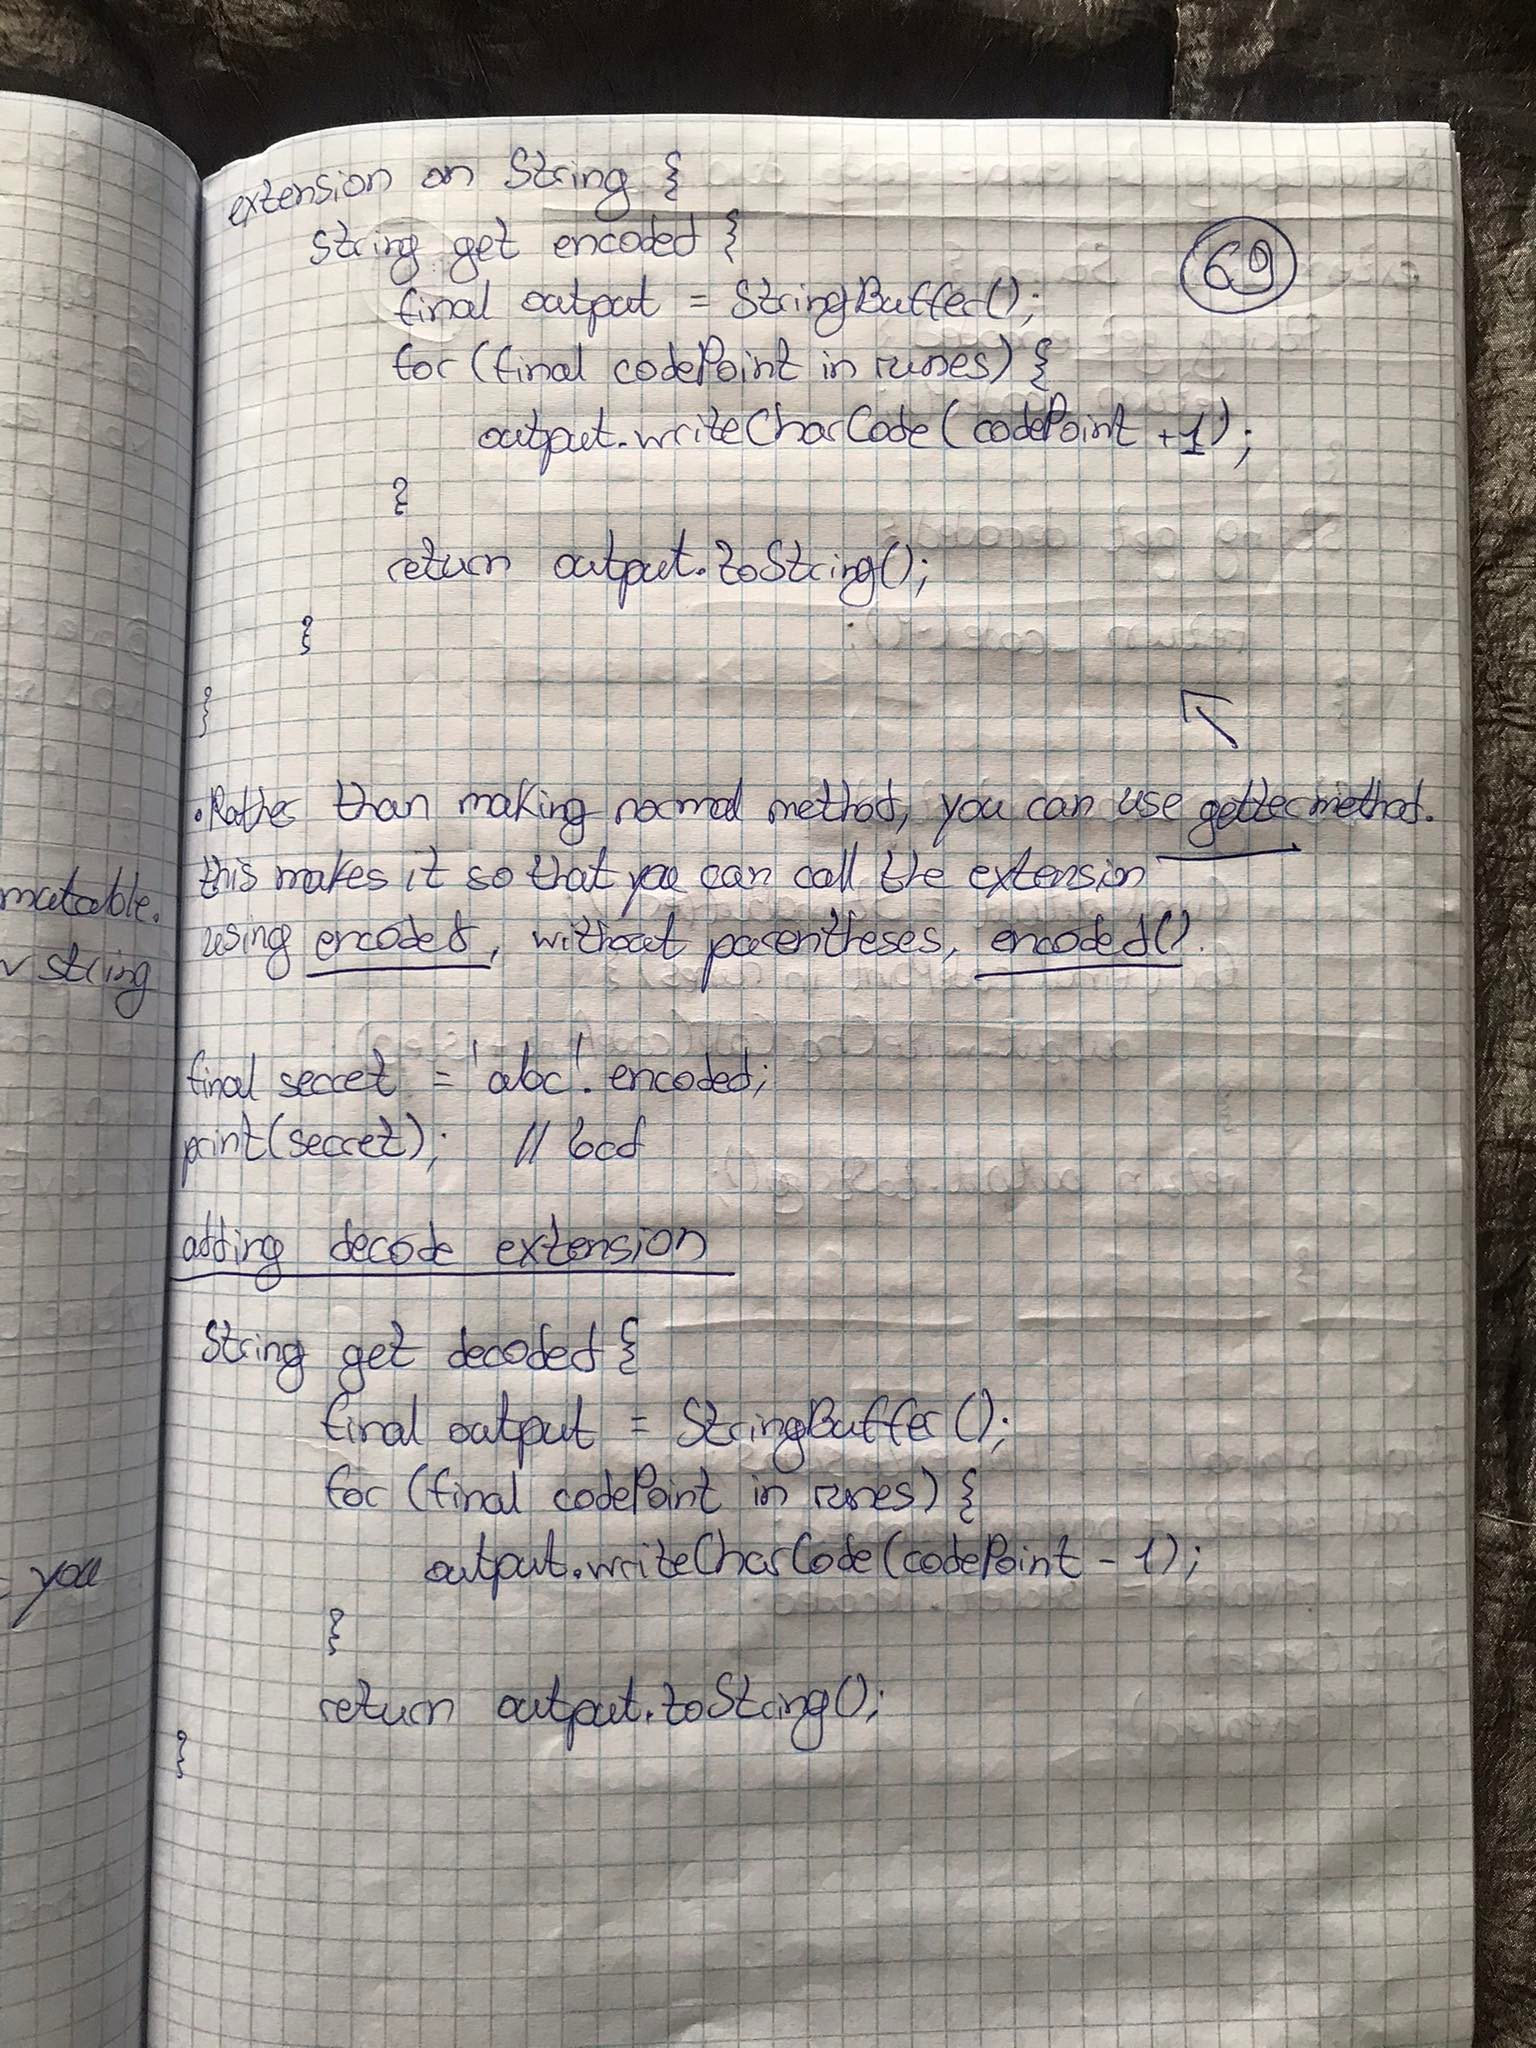 extension on String {
69
String get encoded {
final output = StringBuffer();
for (final codePoint in runes) {
output.writeCharCode(codePoint +1);
}
return output.toString();
}
}
• Rather than making normal method, you can use getter method.
this makes it so that you can call the extension
using encoded, without parentheses, encoded().
final secret = 'abc'.encoded;
print(secret); // bcd
adding decode extension
String get decoded {
final output = StringBuffer();
for (final codePoint in runes) {
output.writeCharCode(codePoint - 1);
}
return output.toString();
}
mutable.
string
you